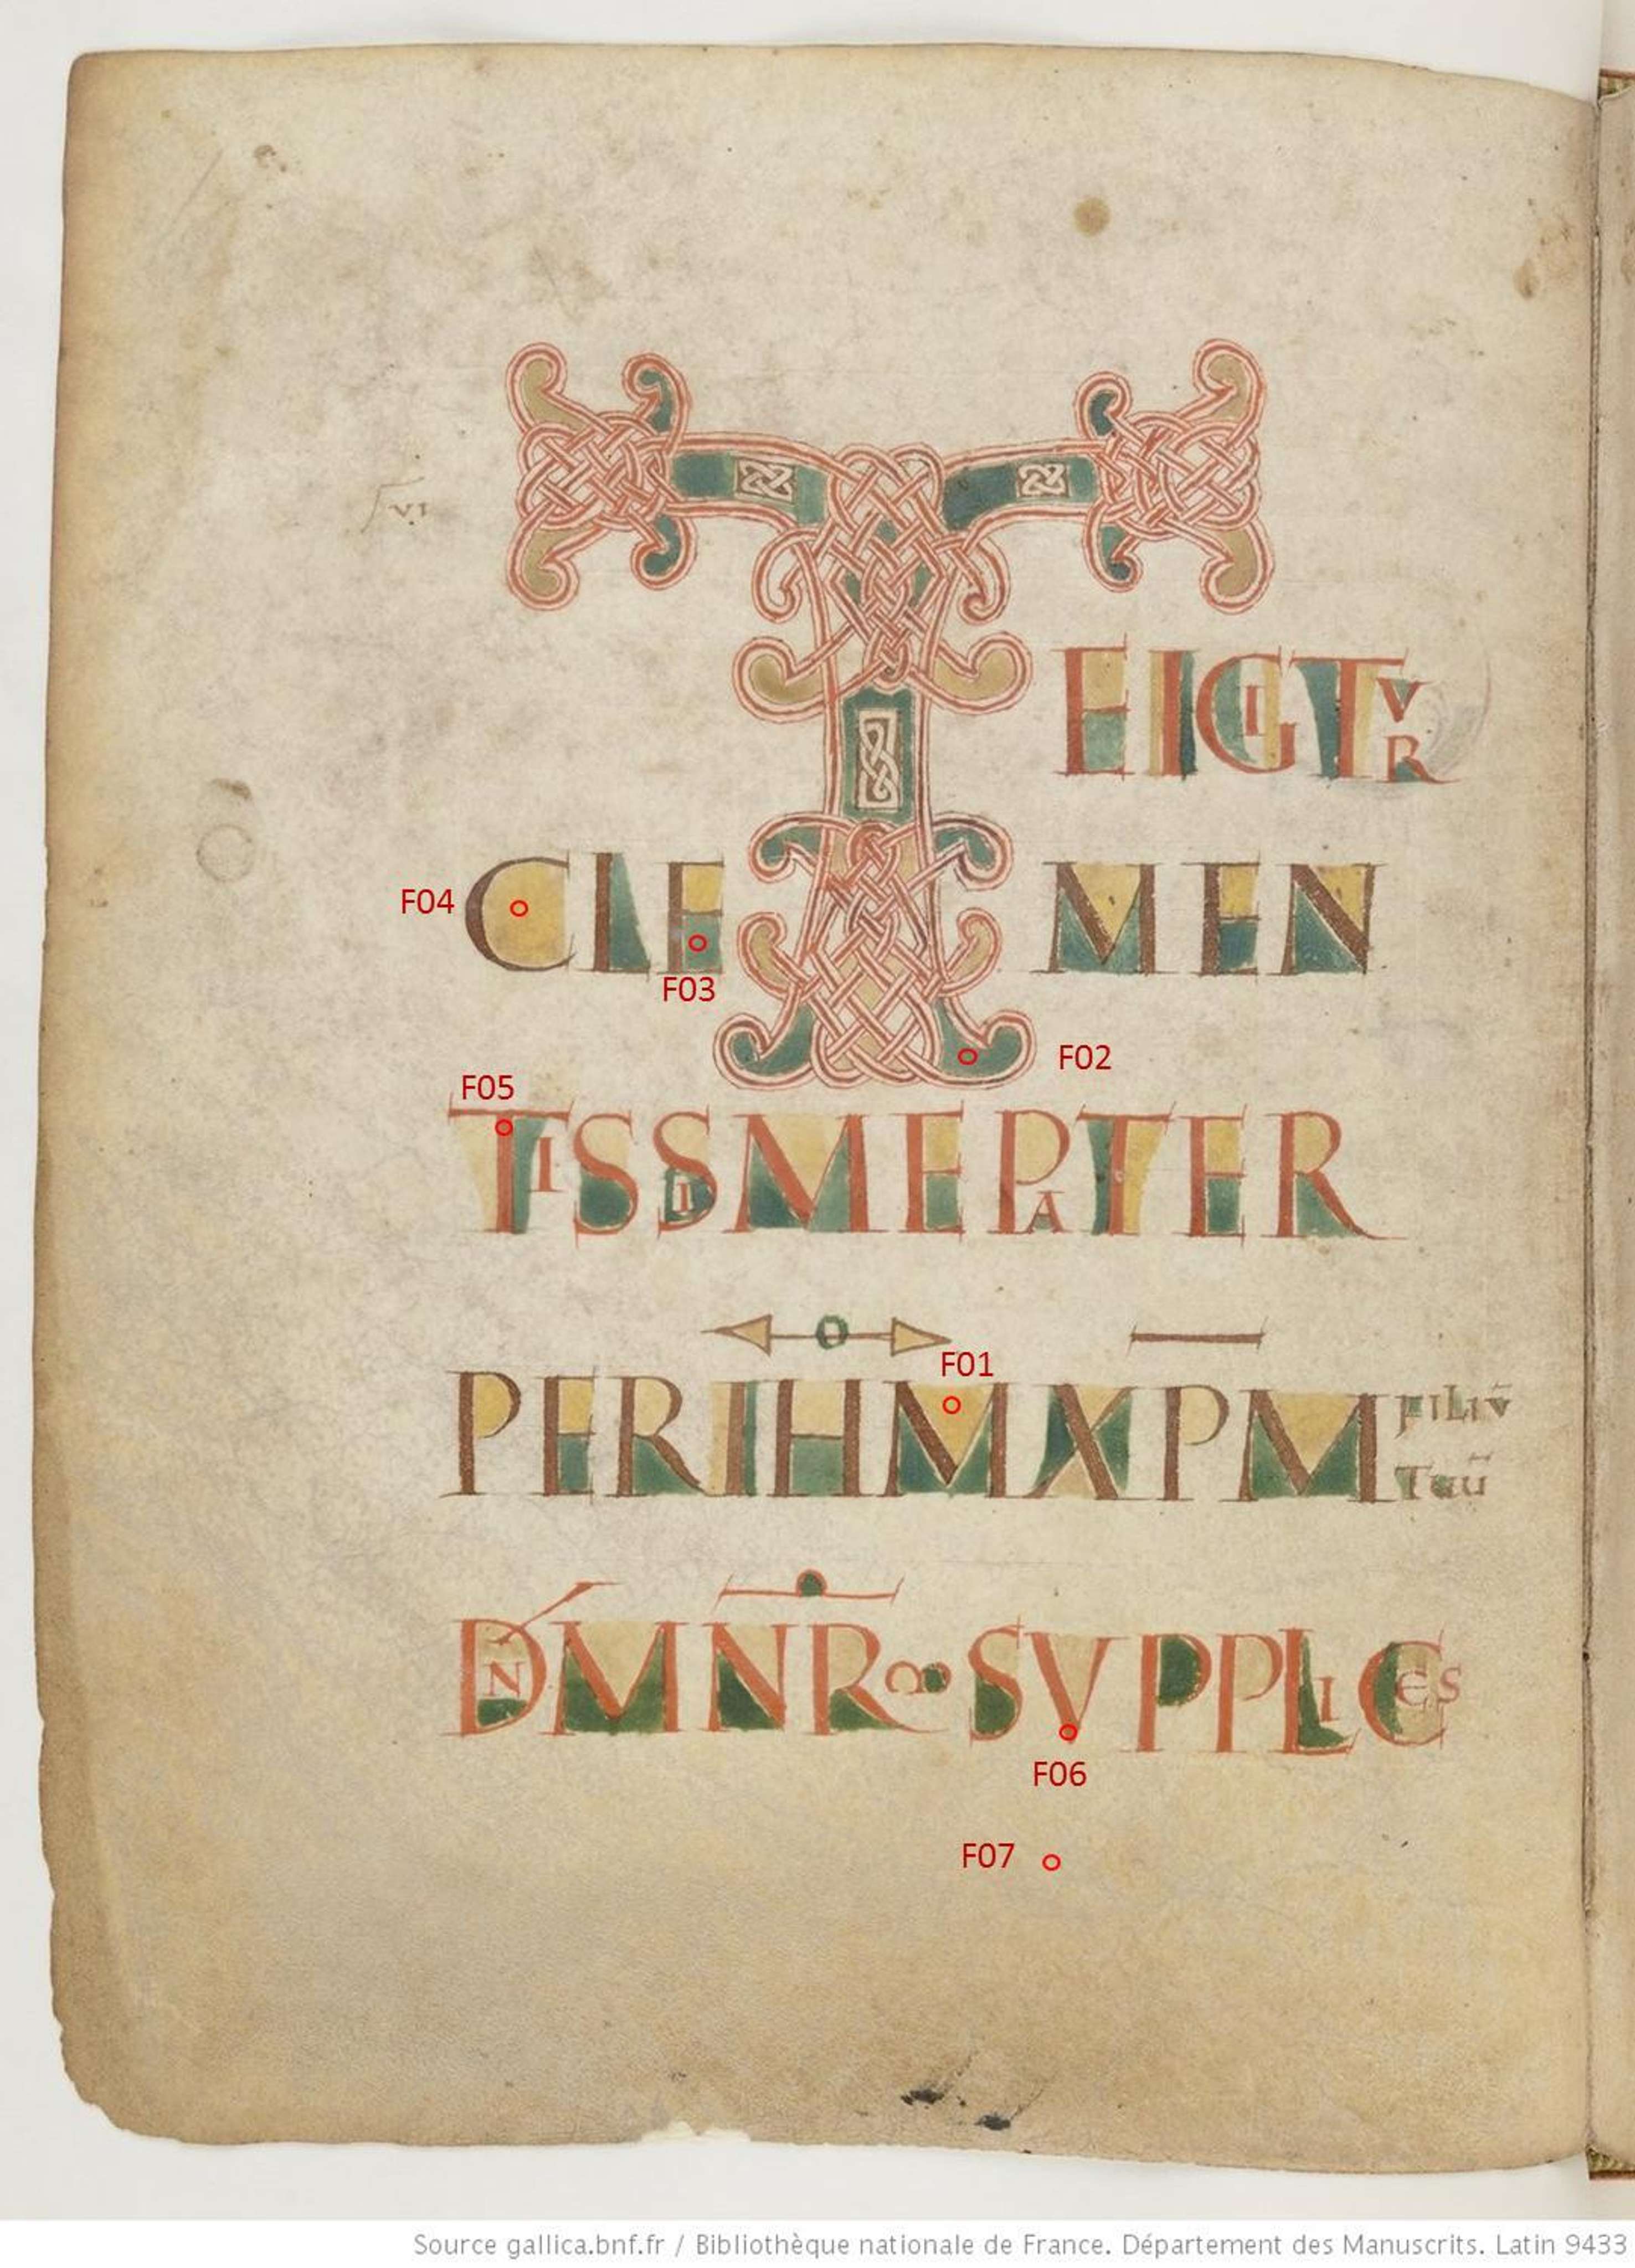 F VI
T
EIGITVR
CLEMEN
F04
F03
F02
F05
TISSIMEPATER
F01
PERIHMXPM FILIV̄
TUŪ
DN̄M NR̄OR SVPPLICES
F06
F07
Source gallica.bnf.fr / Bibliothèque nationale de France. Département des Manuscrits. Latin 9433